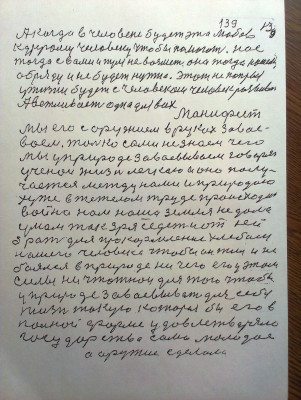 139
А когда в человеке будет эта любов
к другому человеку чтобы помогат. нас
тогда с вами и тут не возмет она тогда
обряду и не будет нужна. Этот не
у жизни будет с человеком человек развиваем
А ветливает одна для вас
Манифест
Мы его с оружием в руках завае-
ваем, только сами не знаем чего
Мы у природе заваевываем говорят
ученои жизн легкаю а оно полу-
чается между нами и природою
хуже в тежелом труде происходит
война нам наша земля не дала
умом так зря седет от ней
брат для прокормление хлеба
нашего человека чтобы он жил и не
боялся в природе ни чего его у этом
силы ничтожной для того чтобы
у природе заваевыват для себе
жизн такую которая бы его в
полной форме удовлетворяло
государство само молодое
а оружие сделала